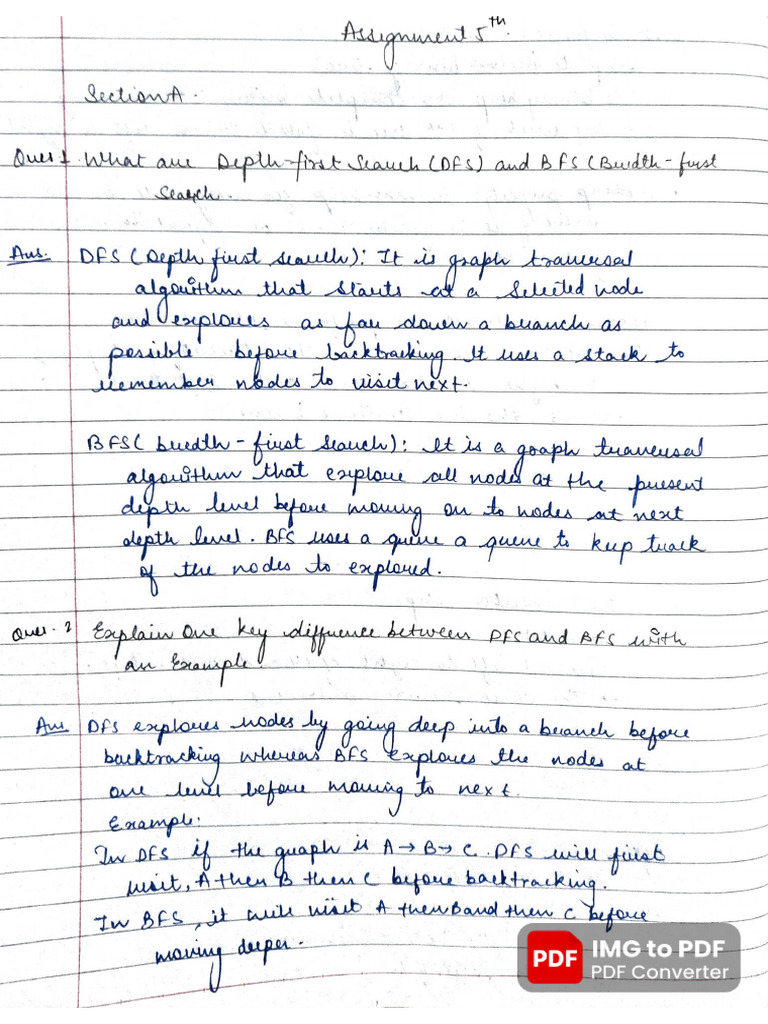 Assignment 5th.
Section A.
Ques 1 What are Depth-first Search (DFS) and BFS (Buedth-first
Search.
Ans. DFS (Depth first search): It is graph traversal
algorithm that starts at a selected node
and explores as far down a branch as
possible before backtracking. It uses a stack to
remember nodes to visit next.
BFS( bredth-first search): It is a graph traversal
algorithm that explore all nodes at the present
depth level before moving on to nodes at next
depth level. BFS uses a queue a queue to keep track
of the nodes to explored.
Ques. 2 Explain One key diffuence between DFS and BFS with
an Example.
Ans DFS explores nodes by going deep into a branch before
backtracking whereas BFS explores the nodes at
one level before moving to next.
Example:
In DFS if the graph is A→B→C. DFS will first
visit, A then B then C before backtracking.
In BFS, it will visit A then B and then C before
moving deeper.
PDF IMG to PDF
PDF Converter